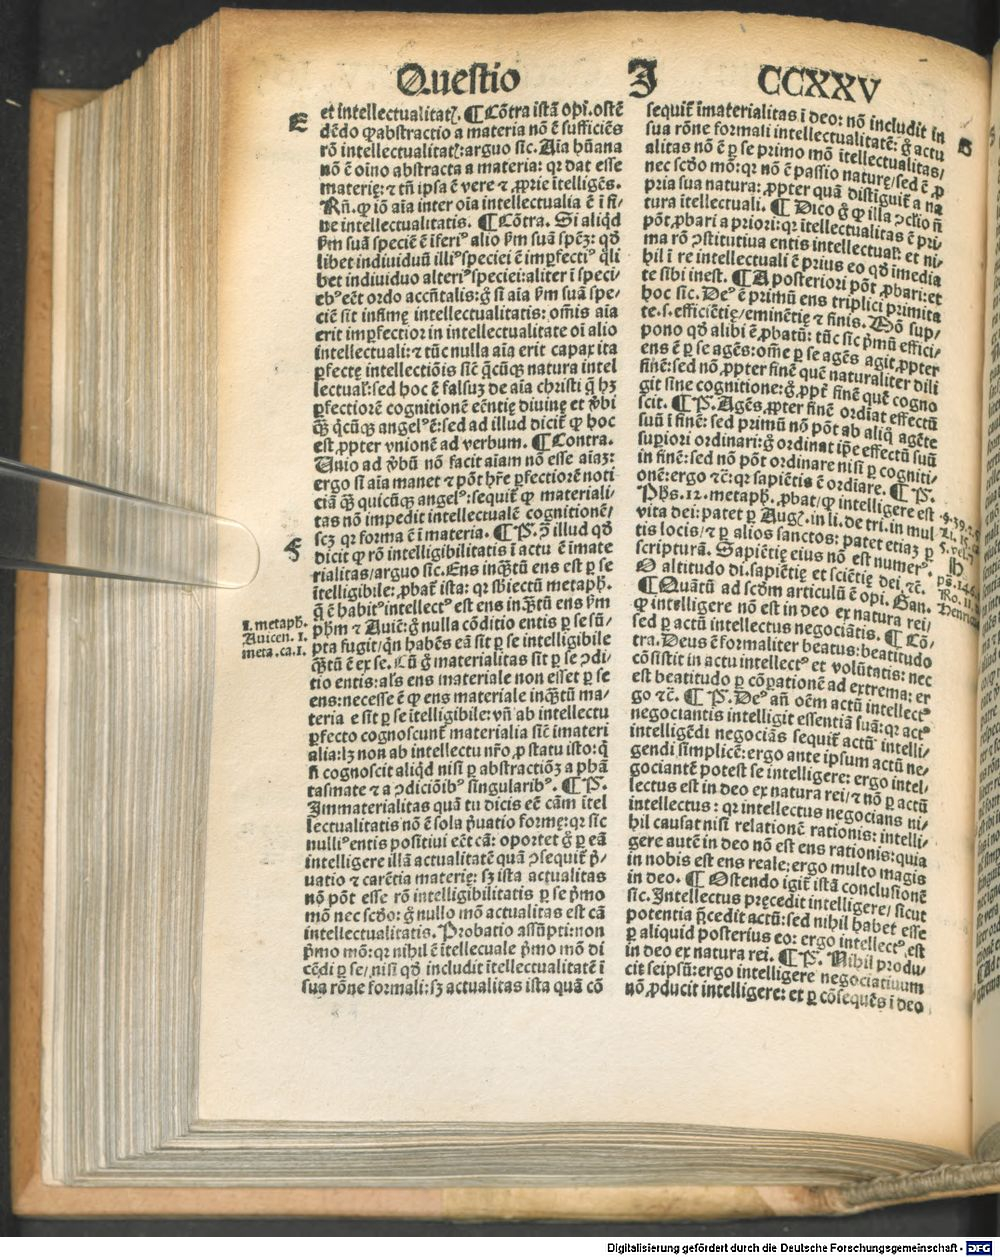 Questio I CCXXV
E
et intellectualitatꝭ. ¶Cõtra istã opĩ. ostẽ
dẽdo ꝙ abstractio a materia nõ ẽ sufficiẽs
rõ intellectualitatꝭ: arguo sic. Aĩa hũana
nõ ẽ oĩno abstracta a materia: qꝛ dat esse
materię: ⁊ tñ ipsa ẽ vere ⁊ ꝓprie ĩtelligẽs.
Rñ. ꝙ iõ aĩa inter oĩa intellectualia ẽ ĩ fi/
ne intellectualitatis. ¶Cõtra. Si aliqd̃
ẜm suã speciẽ ẽ ĩferiꝰ alio ẜm suã spẽꝫ: qd̃
libet indiuiduũ illiꝰ speciei ẽ imꝑfectiꝰ q̃li
bet indiuiduo alteriꝰ speciei: aliter ĩ speci/
ebꝰ eẽt ordo accñtalis: g̃ si aĩa ẜm suã spe/
ciẽ sit infimę intellectualitatis: om̃is aĩa
erit imꝑfectior in intellectualitate oĩ alio
intellectuali: ⁊ tũc nulla aĩa erit capax ita
ꝑfectę intellectiõis sic̃ q̃cũqꝫ natura intel
lectualꝭ: sed hoc ẽ falsuꝫ de aĩa christi q̃ hꝫ
ꝑfectiorẽ cognitionẽ eẽntię diuinę et v̾bi
qꝫ̃ q̃cũqꝫ angelꝰ ẽ: sed ad illud dicit̃ ꝙ hoc
est ꝓpter vnionẽ ad verbum. ¶Contra.
Unio ad v̾bũ nõ facit aĩam nõ esse aĩaꝫ:
ergo si aĩa manet ⁊ põt hr̃e ꝑfectiorẽ noti
ciã qꝫ̃ quicũqꝫ angelꝰ: sequit̃ ꝙ materiali/
tas nõ impedit intellectualẽ cognitionẽ/
scꝫ qꝛ forma ẽ ĩ materia. ¶P̃. ↄ̃ illud qd̃
F
dicit ꝙ rõ intelligibilitatis ĩ actu ẽ ĩmate
rialitas/arguo sic. Ens inqꝫ̃tũ ens est ꝑ se
ĩtelligibile: ꝓbat̃ ista: qꝛ sb̃iectũ metapḣ.
q̃ ẽ habitꝰ intellectꝰ est ens inqꝫ̃tũ ens ẜm
1. metapḣ.
Auicen. 1.
meta. ca. 1.
pḣm ⁊ Auiẽ: g̃ nulla cõditio entis ꝑ se sũ/
pta fugit/qñ habẽs eã sit ꝑ se intelligibile
qꝫ̃tũ ẽ ex se. Cũ g̃ materialitas sit ꝑ se ↄ̃di/
tio entis: al̃s ens materiale non esset ꝑ se
ens: necesse ẽ ꝙ ens materiale inqꝫ̃tũ ma/
teria e sit ꝑ se ĩtelligibile: vñ ab intellectu
ꝑfecto cognoscunt̃ materialia sic̃ imateri
alia: lꝫ non ab intellectu nr̃o ꝓ statu isto: q̃
ñ cognoscit aliqd̃ nisi ꝑ abstractiõꝫ a phã
tasmate ⁊ a ↄ̃diciõibꝰ singularibꝰ. ¶P̃.
Immaterialitas quã tu dicis eẽ cãm ĩtel
lectualitatis nõ ẽ sola p̃uatio formę: qꝛ sic
nulliꝰ entis positiui eẽt cã: oportet g̃ ꝑ eã
intelligere illã actualitatẽ quã ↄ̃sequit̃ p̃/
uatio ⁊ carẽtia materię: sꝫ ista actualitas
nõ põt esse rõ intelligibilitatis ꝑ se p̃mo
mõ nec scd̃o: g̃ nullo mõ actualitas est cã
intellectualitatis. Probatio assũpti: non
p̃mo mõ: qꝛ nihil ẽ ĩtellecuale p̃mo mõ di
cẽdi ꝑ se/nisi qd̃ includit ĩtellectualitatẽ ĩ
sua rõne formali: sꝫ actualitas ista quã cõ
sequit̃ ĩmaterialitas ĩ deo: nõ includit in
G
sua rõne formali intellectualitatẽ: g̃ actu
alitas nõ ẽ ꝑ se primo mõ ĩtellectualitas/
nec scd̃o mõ: qꝛ nõ ẽ passio naturę/sed ẽ ꝓ
pria sua natura: ꝓpter quã distiguit̃ a na
tura ĩtellectuali. ¶Dico g̃ ꝙ illa ↄ̃clio ñ
põt ꝓbari a priori: qꝛ ĩtellectualitas ẽ pri/
ma rõ ↄ̃stitutiua entis intellectualꝭ: et ni/
hil ĩ re intellectuali ẽ prius eo qd̃ imedia
te sibi inest. ¶A posteriori põt ꝓbari: et
hoc sic. Deꝰ ẽ primũ ens triplici primita
te. s. efficiẽtię/eminẽtię ⁊ finis. Mõ sup/
pono qd̃ alibi ẽ ꝓbatũ: tũc sic p̃mũ effici/
ens ẽ ꝑ se agẽs: om̃e ꝑ se agẽs agit ꝓpter
finẽ: sed nõ ꝓpter finẽ quẽ naturaliter dili
git sine cognitione: g̃ ꝓpt̃ finẽ quẽ cogno
scit. ¶P̃. Agẽs ꝓpter finẽ ordiat effectũ
suũ ĩ finẽ: sed primũ nõ põt ab aliq̃ agẽte
supiori ordinari: g̃ ordinat ip̃e effectũ suũ
in finẽ: sed nõ põt ordinare nisi ꝑ cogniti/
onẽ: ergo ⁊c̃: qꝛ sapiẽtis ẽ ordiare. ¶P̃.
Pḣs. 12. metapḣ. ꝓbat/ꝙ intelligere est
vita dei: patet ꝑ Augꝭ. in li. de tri. in mul
tis locis/⁊ ꝑ alios sanctos: patet etiaꝫ ꝑ
H
scripturã. Sapiẽtię eius nõ est numerꝰ.
ps. 146.
O altitudo di. sapiẽtię et sciẽtię dei ⁊c̃.
Ro. 11.
¶Quãtũ ad scd̃m articulũ ẽ opi. Gan.
ꝙ intelligere nõ est in deo ex natura rei/
sed ꝑ actũ intellectus negociãtis. ¶Cõ/
tra. Deus ẽ formaliter beatus: beatitudo
cõsistit in actu intellectꝰ et volũtatis: nec
est beatitudo ꝑ cõꝑationẽ ad extrema: er
go ⁊c̃. ¶P̃. Deꝰ añ oẽm actũ intellectꝰ
negociantis intelligit essentiã suã: qꝛ actꝰ
intelligẽdi negociãs sequit̃ actũ intelli/
gendi simplicẽ: ergo ante ipsum actũ ne/
gociantẽ potest se intelligere: ergo intel/
lectus est in deo ex natura rei/⁊ nõ ꝑ actũ
intellectus: qꝛ intellectus negocians ni/
hil causat nisi relationẽ rationis: intelli/
gere autẽ in deo nõ est ens rationis: quia
in nobis est ens reale: ergo multo magis
in deo. ¶Ostendo igit̃ istã conclusionẽ
sic. Intellectus pręcedit intelligere/sicut
potentia p̃cedit actũ: sed nihil habet esse
ꝑ aliquid posterius eo: ergo intellectꝰ est
in deo ex natura rei. ¶P̃. Nihil produ/
cit seipsũ: ergo intelligere negociatiuum
nõ ꝓducit intelligere: et ꝑ cõsequẽs ĩ deo
Digitalisierung gefördert durch die Deutsche Forschungsgemeinschaft - DFG